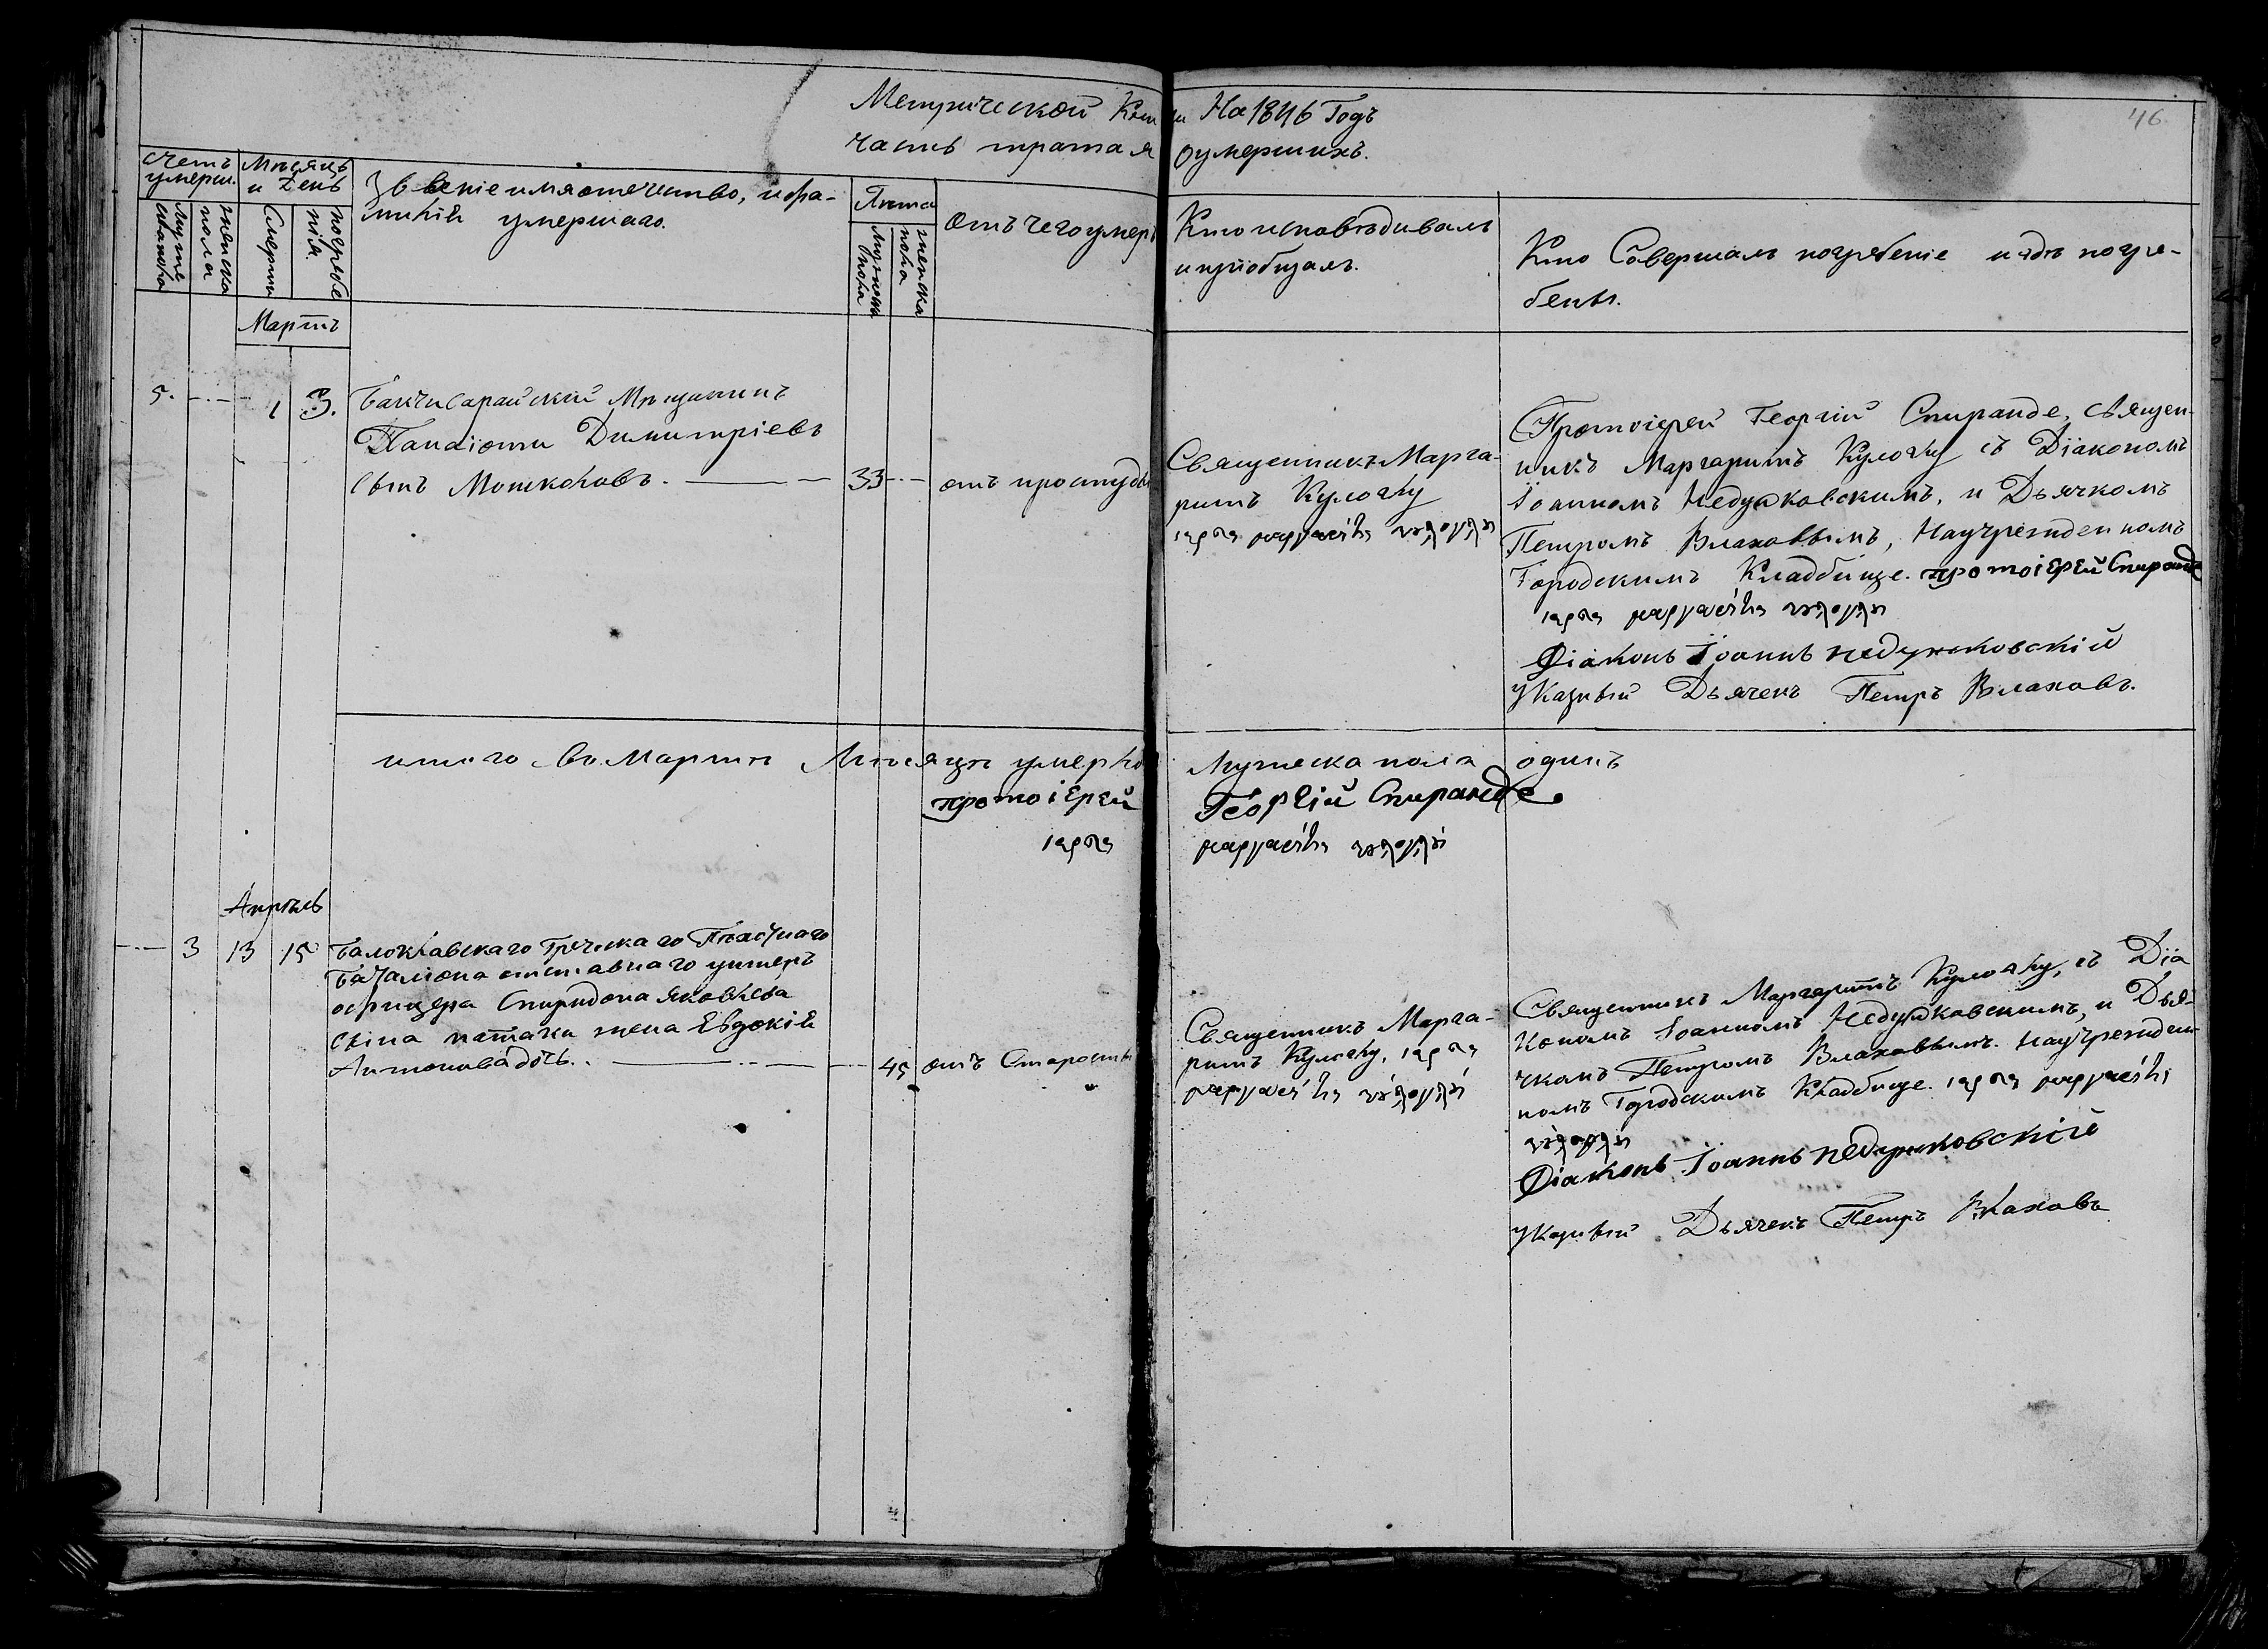 Метрической Кни и На 1846 Годъ
часть третая оумершихъ.
46
счетъ умерш.
Мѣсяцъ и день
мужескаго пола
женска пола
Смерти
погребенія
Званіе имя отечество, и фа-
милія умершаго.
Лѣта
мужеска пола
женска пола
отъ чего умеръ
Кто исповѣдивалъ
и пріобщалъ.
Кто Совершалъ погребеніе и гдѣ погре-
бены.
Мартъ
5. 1 3.
Бахчисарайскій Мѣщанинъ
Панаіоти Димитріевъ
сынъ
33
отъ простуды
Священникъ Марга-
ритъ Кулогку
Протоіерей Георгій Спиранде, Священ-
никъ Маргаритъ Кулогку съ Діакономъ
Іоанномъ Недужковскимъ, и Дьячкомъ
Петромъ Влаховымъ, На учрежденномъ
Городскимъ Кладбище. протоіерей Спиранде
Діаконъ Іоаннъ недужковскій
Указный Дьячекъ Петръ Влаховъ.
итого во Мартѣ Мѣсяцѣ умерло Мужеска пола одинъ
протоіерей Георгій Спиранде.
Апрѣль
3 13 15
Балоклавскаго Греческаго Пѣхотнаго
Баталіона отставнаго унтеръ
офицера Спиридона Яковлева
сына жена Евдокія
Антонова дочь.
45
отъ Старости
Священникъ Марга-
ритъ Кулогку,
Священникъ Маргаритъ Кулогку, съ Діа
кономъ Іоанномъ Недужковскимъ, и Дья-
чкомъ Петромъ Влаховымъ. На учрежден-
номъ Городскомъ Кладбище.
Діаконъ Іоаннъ недужковскій
Указный Дьячекъ Петръ Влаховъ